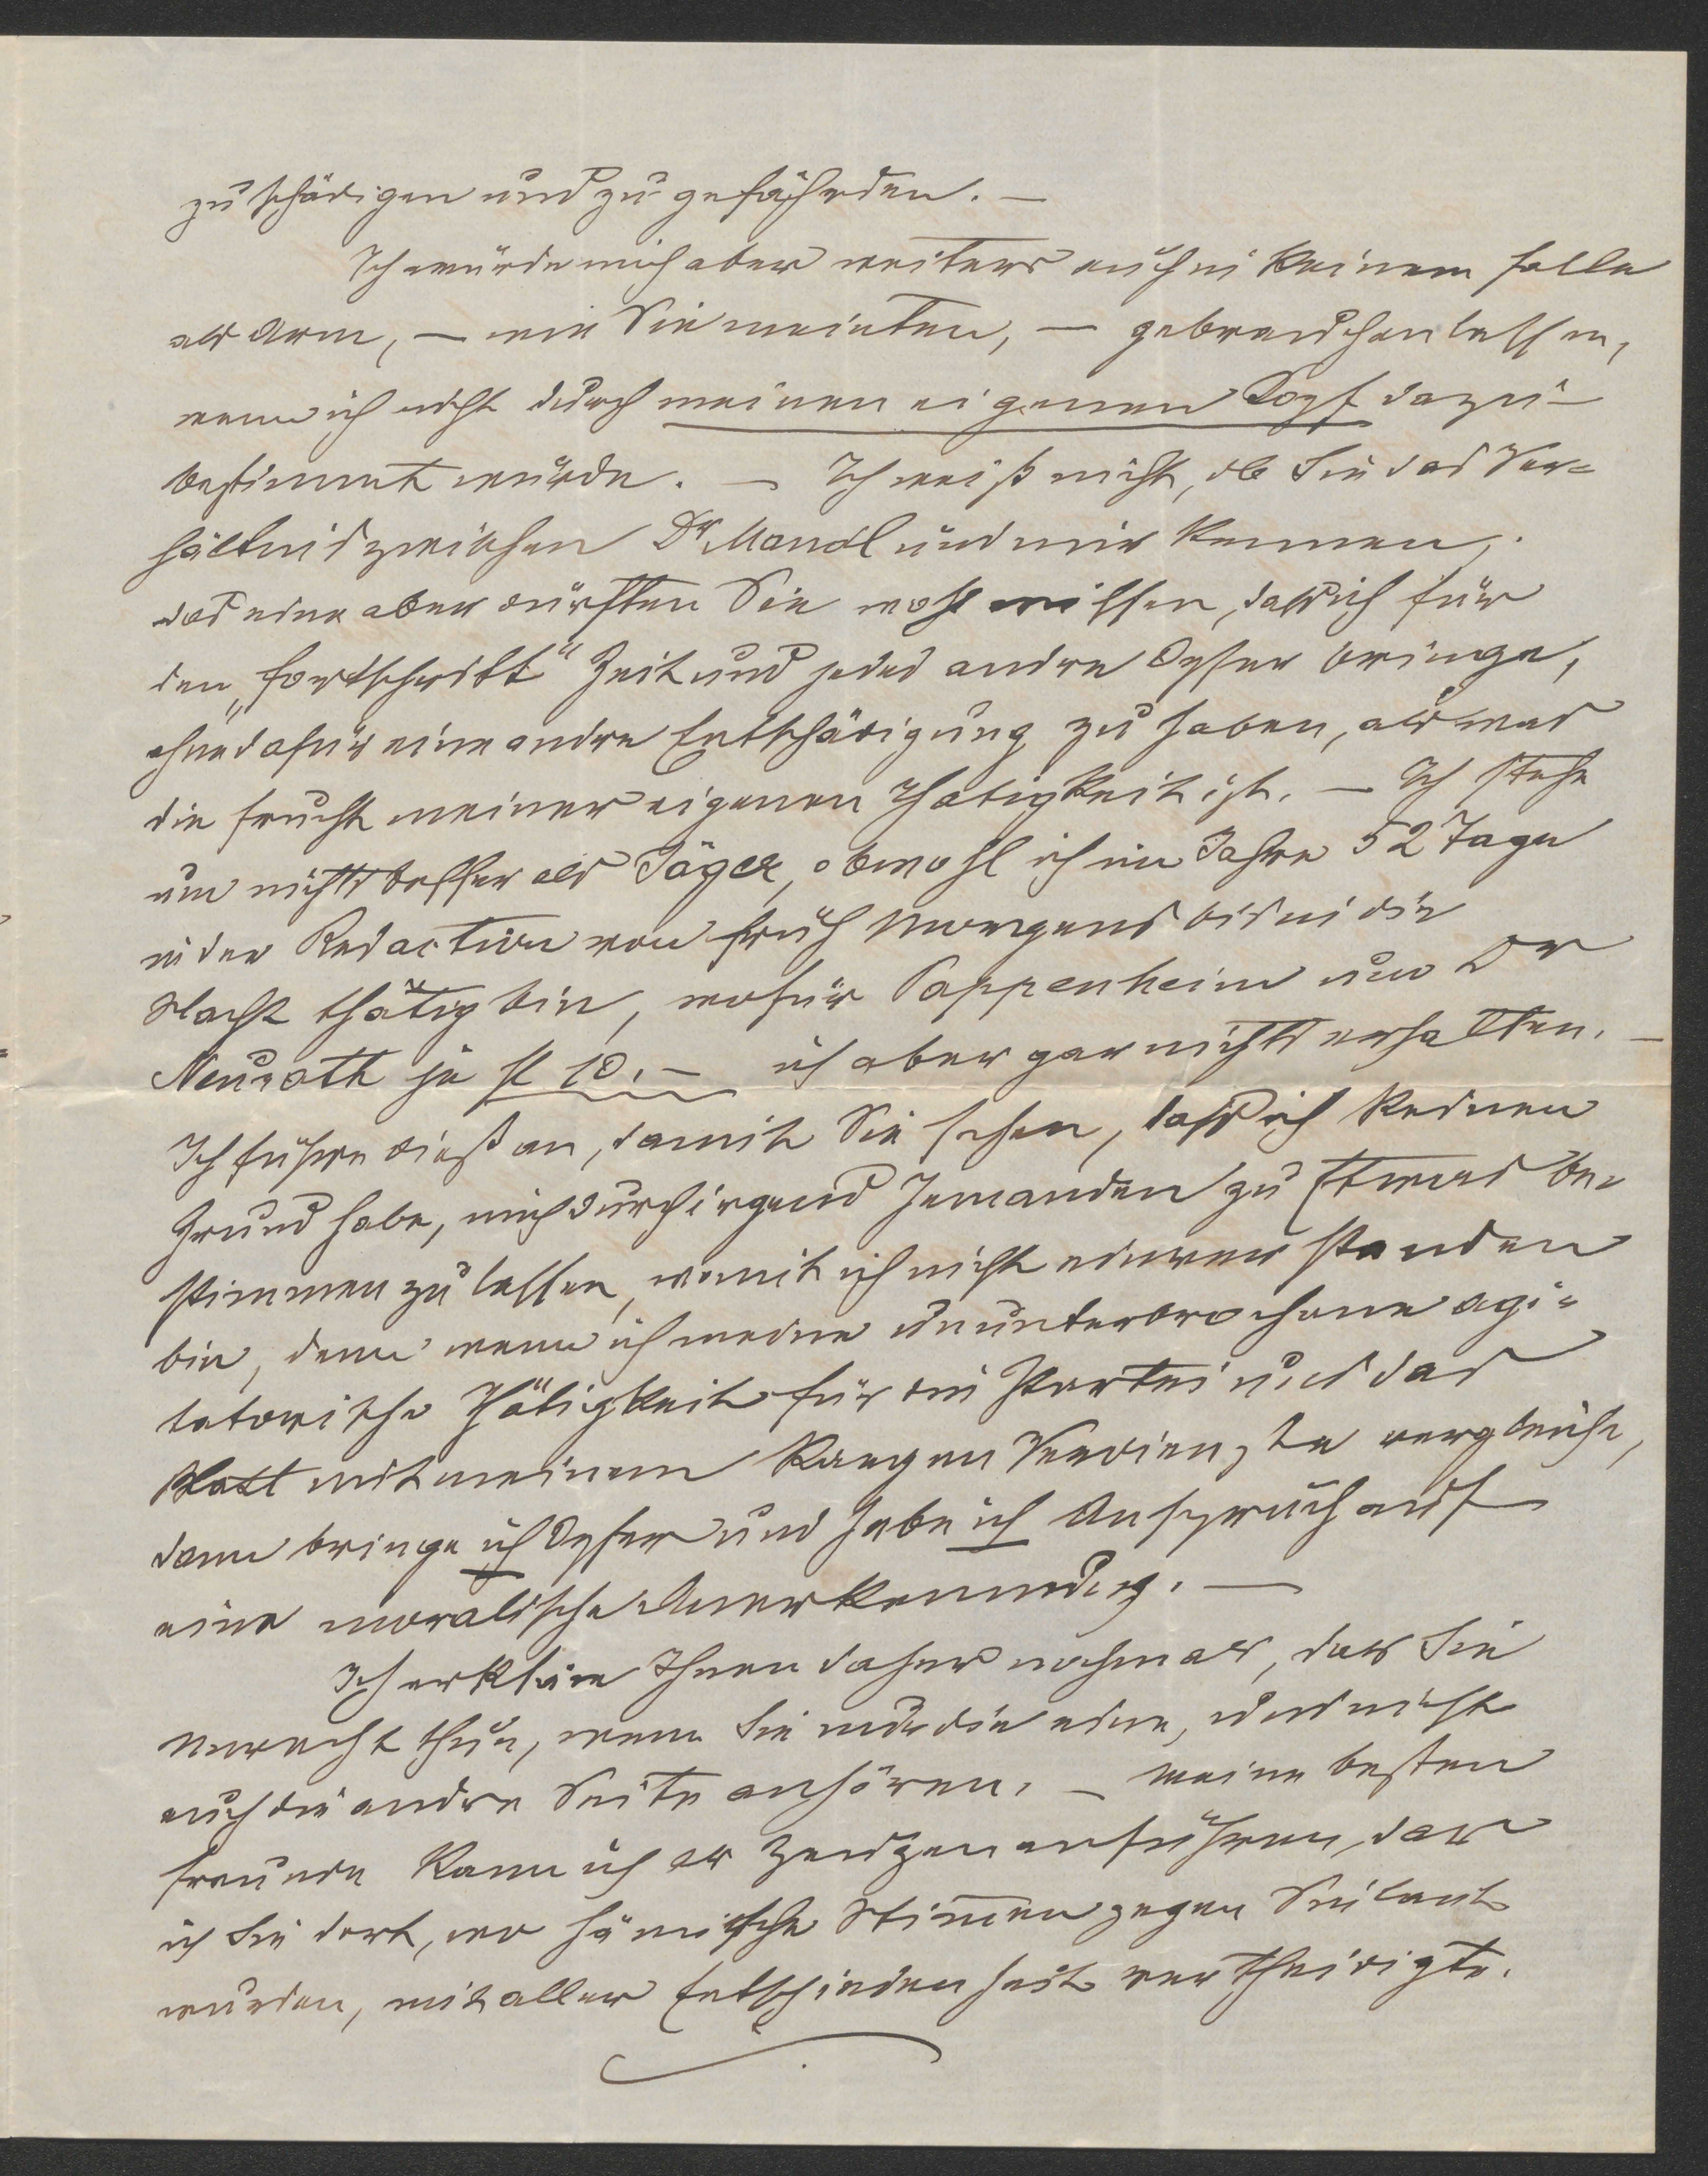 zu schädigen und zu gefährden. —
Ich würde mich aber weiters auch in keinem Falle
als Arm, — wie Sie meinten, — gebrauchen lassen,
wenn ich nicht durch meinen eigenen Kopf dazu
bestimmt würde. — Ich weiß nicht, ob Sie das Ver=
hältnis zwischen Dr Mandl und mir kennen,
das eine aber dürften Sie wohl wissen, dass ich für
den „Fortschritt" Zeit und jedes andre Opfer bringe,
ohne dafür eine andre Entschädigung zu haben, als was
die Frucht meiner eigenen Thätigkeit ist. — Ich stehe
um nichts besser als Jäger, obwohl ich im Jahre 52 Tage
in der Redaction von früh Morgens bis in die
Nacht thätig bin, wofür Pappenheim und Dr
Neurath je fl 10.— ich aber gar nichts erhalten. —
Ich führe dieß an, damit Sie sehen, dass ich keinen
Grund habe, mich durch irgend Jemanden zu Etwas be=
stimmen zu lassen, womit ich nicht einverstanden
bin, denn wenn ich meine ununterbrochene agi=
tatorische Thätigkeit für die Partei und das
Blatt mit meinem kargen Verdienste vergleiche,
dann bringe ich Opfer und habe ich Anspruch auf
eine moralische Anerkennung. —
Ich erkläre Ihnen daher nochmals, dass Sie
Unrecht thun, wenn Sie nur die eine, und nicht
auch die andre Seite anhören. — Meine besten
Freunde kann ich als Zeugen anführen, dass
ich Sie dort, wo hämische Stimmen gegen Sie laut
wurden, mit aller Entschiedenheit vertheidigte.